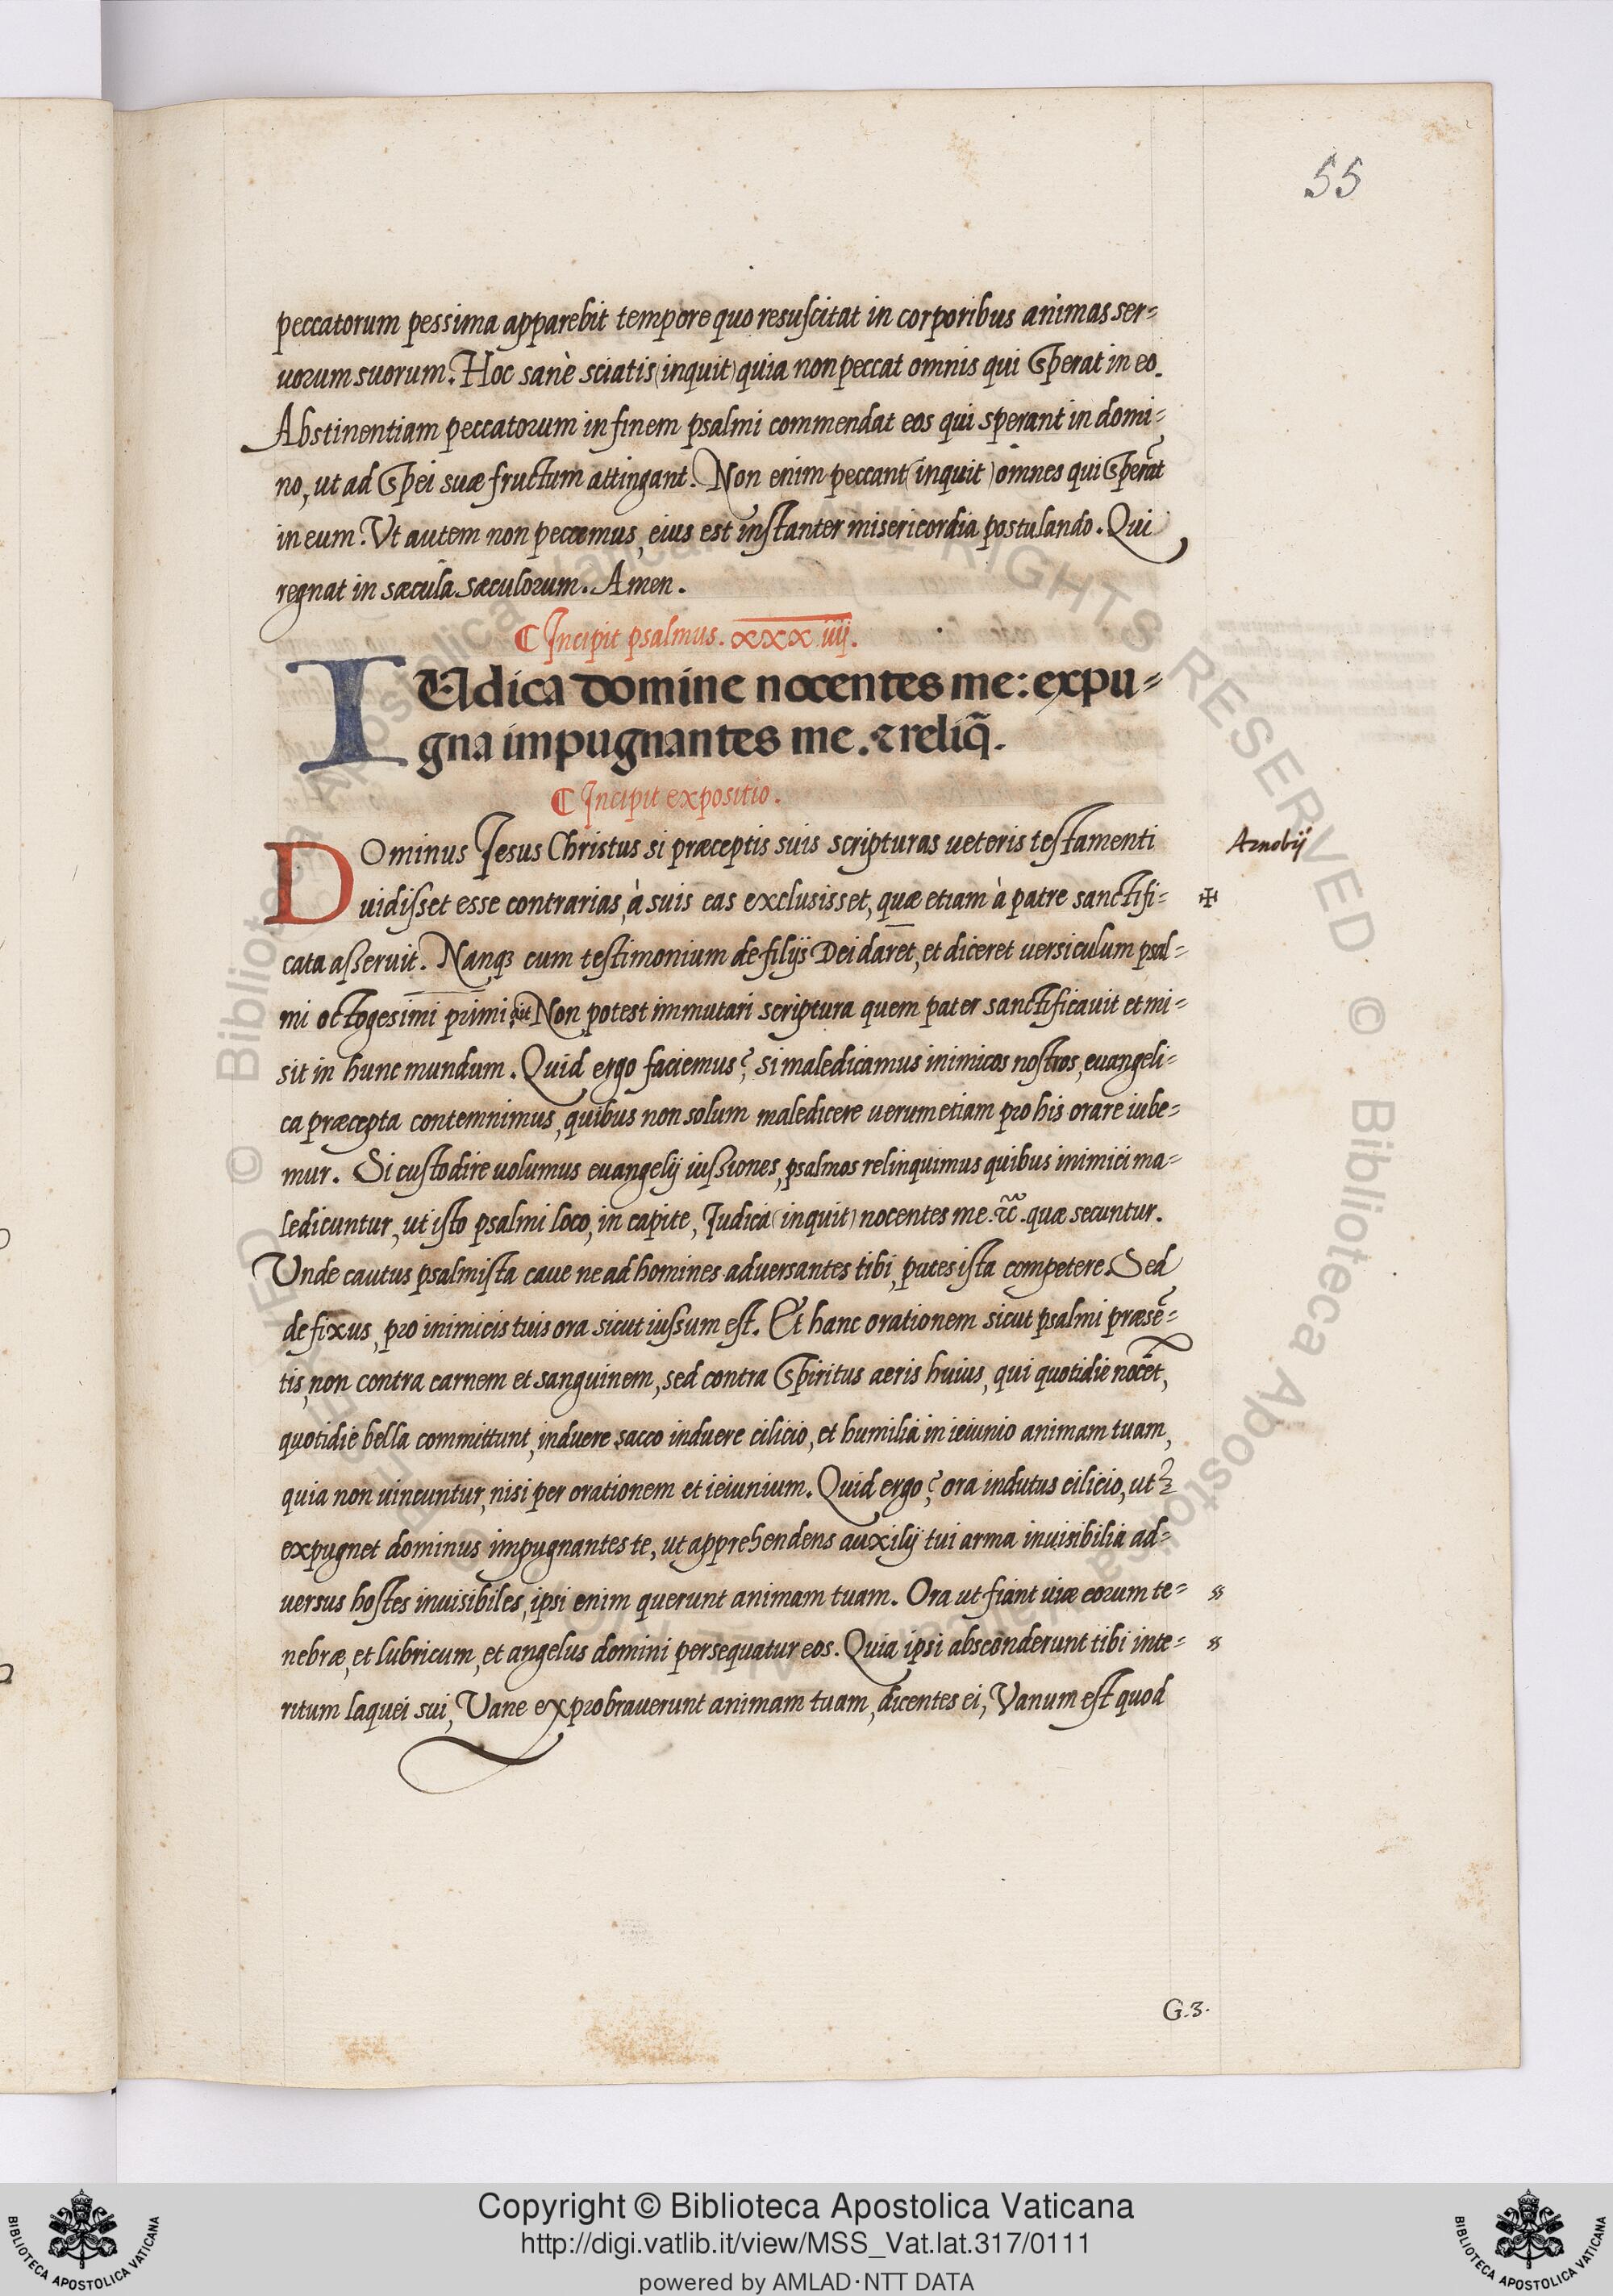 55
peccatorum pessima apparebit tempore quo resuscitat in corporibus animas ser=
uorum suorum. Hoc sanè sciatis (inquit) quia non peccat omnis qui sperat in eo.
Abstinentiam peccatorum in finem psalmi commendat eos qui sperant in domi=
no, ut ad spei suæ fructum attingant. Non enim peccant (inquit) omnes qui sperāt
in eum. Vt autem non peccemus, eius est instanter misericordia postulando. Qui
regnat in sæcula sæculorum. Amen.
¶ Incipit psalmus. xxxiiij.
IUdica domine nocentes me: expu=
gna impugnantes me. & reliq̃.
¶ Incipit expositio.
DOminus Jesus Christus si præceptis suis scripturas ueteris testamenti
Arnobij
uidisset esse contrarias, à suis eas exclusisset, quæ etiam à patre sanctifi= ✠
cata asseruit. Nanqȝ cum testimonium de filijs Dei daret, et diceret uersiculum psal=
mi octogesimi primi ait Non potest immutari scriptura quem pater sanctificauit et mi=
sit in hunc mundum. Quid ergo faciemus? si maledicamus inimicos nostros, euangeli=
ca præcepta contemnimus, quibus non solum maledicere uerum etiam pro his orare iube=
mur. Si custodire uolumus euangelij iussiones, psalmos relinquimus quibus inimici ma=
ledicuntur, ut isto psalmi loco, in capite, Judica (inquit) nocentes me. &c̃. quæ secuntur.
Unde cautus psalmista caue ne ad homines aduersantes tibi, putes ista competere. Sed
defixus, pro inimicis tuis ora sicut iussum est. Et hanc orationem sicut psalmi præsē=
tis, non contra carnem et sanguinem, sed contra spiritus aeris huius, qui quotidie nocēt,
quotidie bella committunt, induere sacco induere cilicio, et humilia in ieiunio animam tuam,
quia non uincuntur, nisi per orationem et ieiunium. Quid ergo? ora indutus cilicio, ut
expugnet dominus impugnantes te, ut apprehendens auxilij tui arma inuisibilia ad=
uersus hostes inuisibiles, ipsi enim querunt animam tuam. Ora ut fiant uiæ eorum te=
nebræ, et lubricum, et angelus domini persequatur eos. Quia ipsi absconderunt tibi inte=
ritum laquei sui, Vane exprobrauerunt animam tuam, dicentes ei, Vanum est quod
G.3.
© Biblioteca Apostolica Vaticana ALL RIGHTS RESERVED
Copyright © Biblioteca Apostolica Vaticana
http://digi.vatlib.it/view/MSS_Vat.lat.317/0111
powered by AMLAD·NTT DATA
BIBLIOTECA APOSTOLICA VATICANA
BIBLIOTECA APOSTOLICA VATICANA